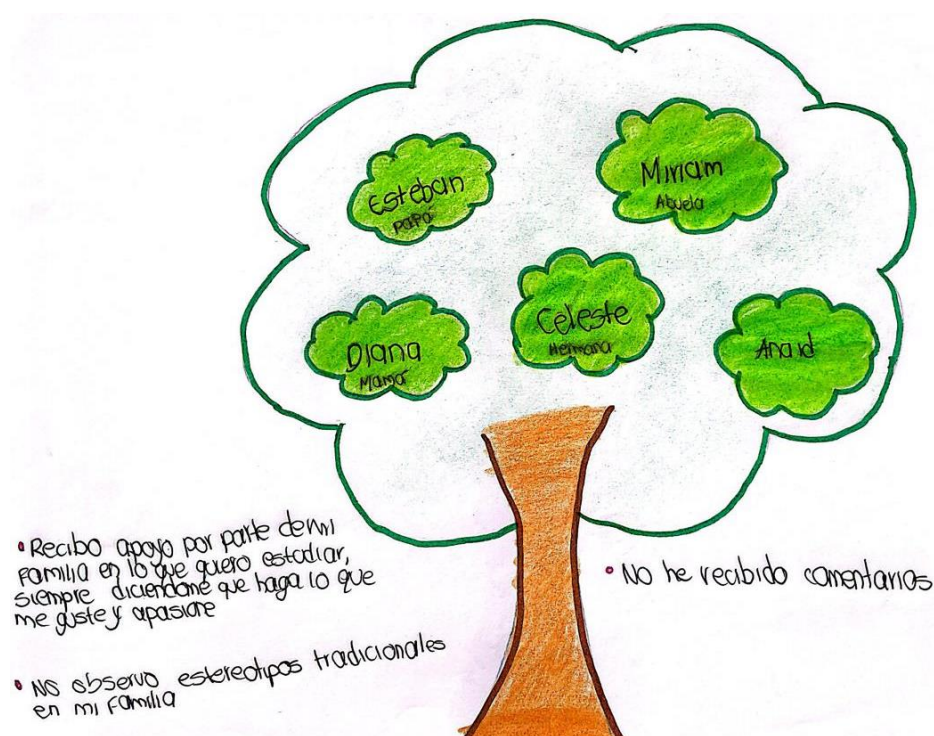 Esteban
Papá
Miriam
Abuela
Diana
Mamá
Celeste
Hermana
Anaid
• Recibo apoyo por parte de mi
familia en lo que quero estudiar,
siempre diciendome que haga lo que
me guste y apasione
• No observo estereotipos tradicionales
en mi familia
• No he recibido comentarios